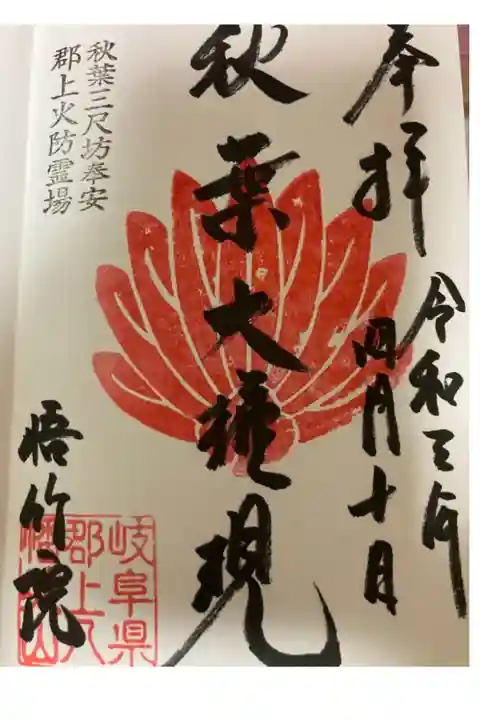 奉拝
令和三年
四月十日
秋葉大権現
秋葉三尺坊奉安
郡上火防霊場
悟竹院
岐阜県
郡上八
幡